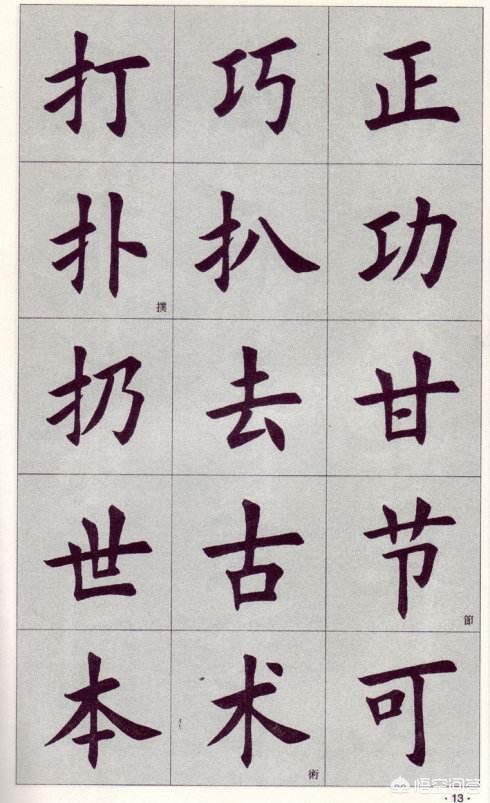 打 巧 正
扑 撲 扒 功
扔 去 甘
世 古 节 節
本 术 術 可
悟空问答
·13·